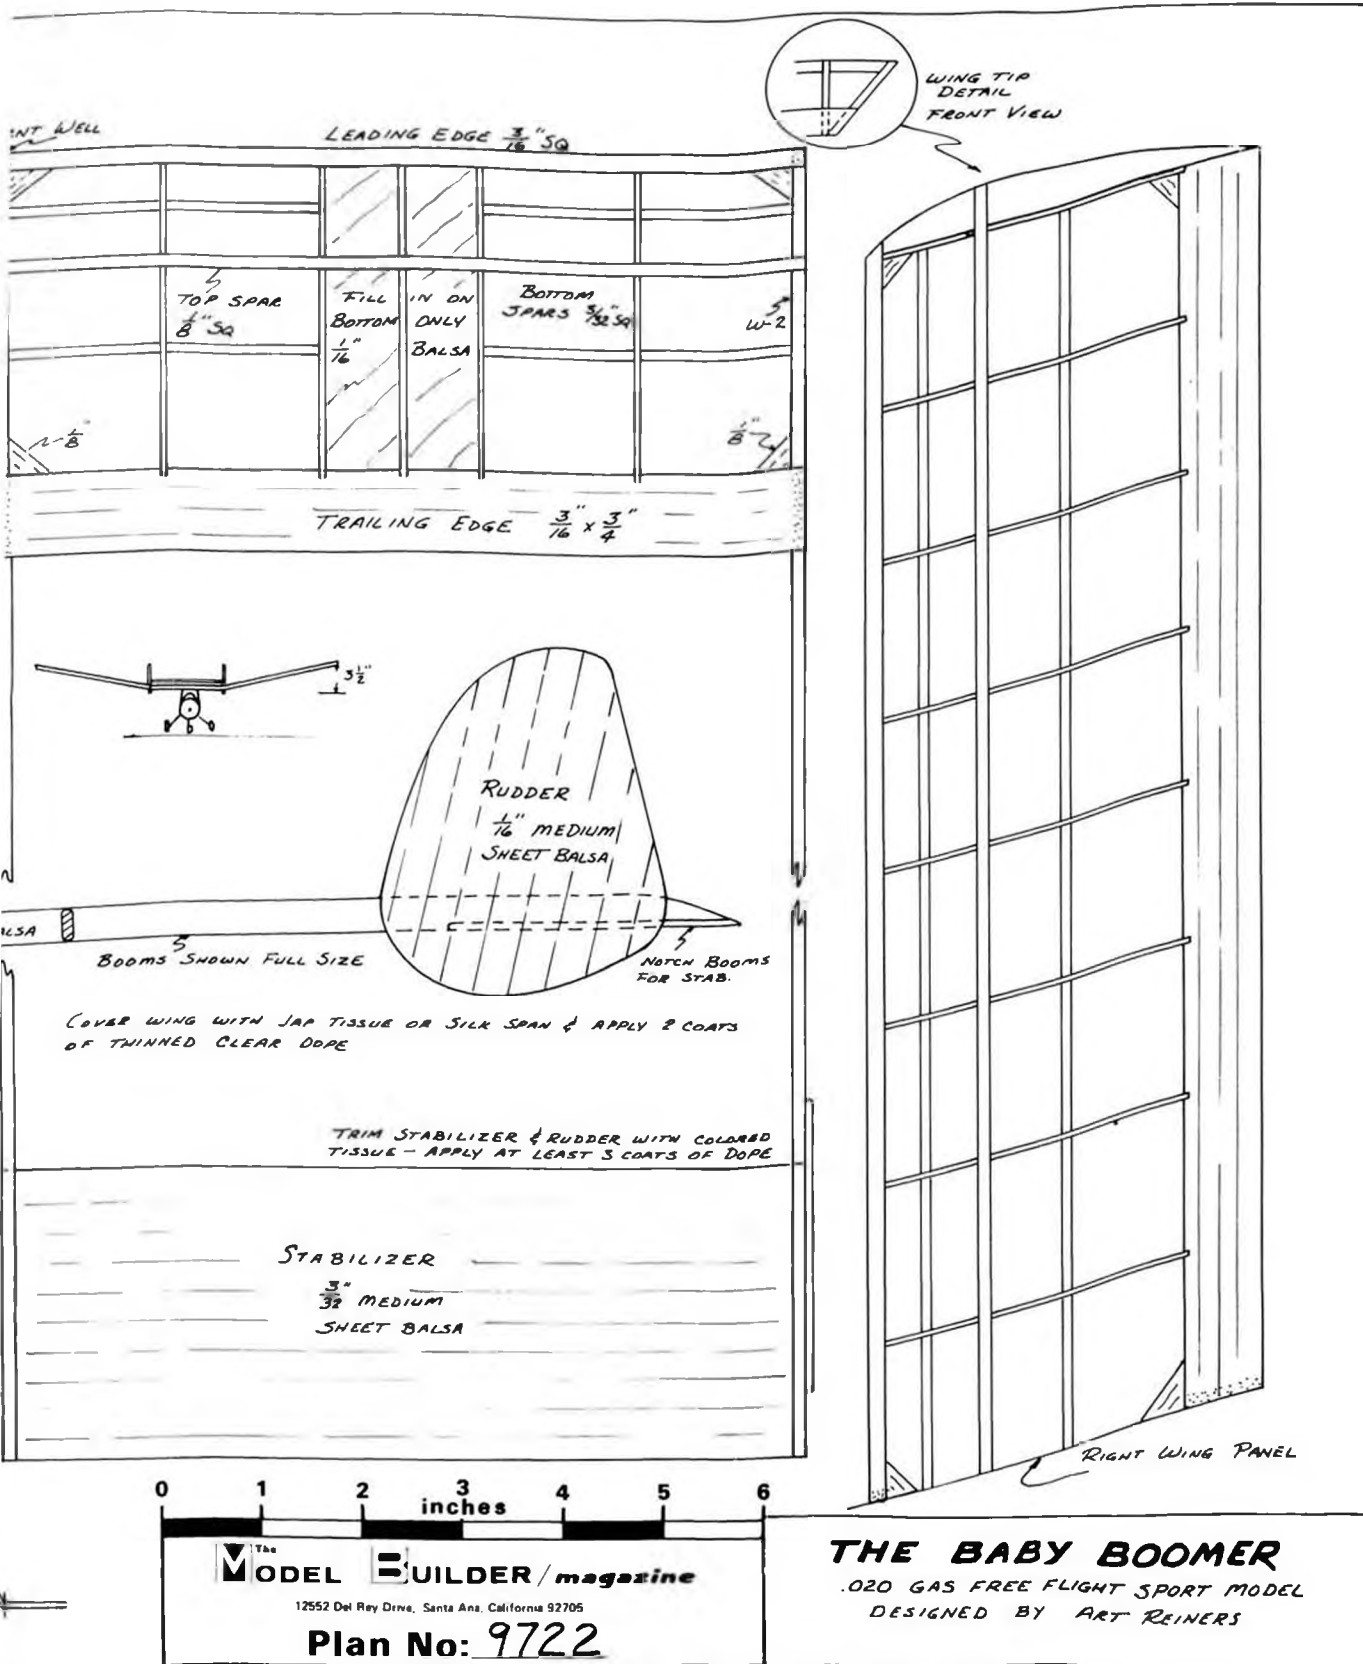 WING TIP
DETAIL
FRONT VIEW
ENT WELL
LEADING EDGE 3/16" SQ
TOP SPAR
1/8" SQ
FILL IN ON
BOTTOM ONLY
1/16" BALSA
BOTTOM
SPARS 3/32" SQ
W-2
1/8"
1/8"
TRAILING EDGE 3/16" x 3/4"
3 1/2"
RUDDER
1/16" MEDIUM
SHEET BALSA
ALSA
BOOMS SHOWN FULL SIZE
NOTCH BOOMS
FOR STAB.
COVER WING WITH JAP TISSUE OR SILK SPAN & APPLY 2 COATS
OF THINNED CLEAR DOPE
TRIM STABILIZER & RUDDER WITH COLORED
TISSUE - APPLY AT LEAST 3 COATS OF DOPE
STABILIZER
3/32" MEDIUM
SHEET BALSA
RIGHT WING PANEL
0 1 2 3 4 5 6
inches
The MODEL BUILDER/magazine
12552 Del Rey Drive, Santa Ana, California 92705
Plan No: 9722
THE BABY BOOMER
.020 GAS FREE FLIGHT SPORT MODEL
DESIGNED BY ART REINERS